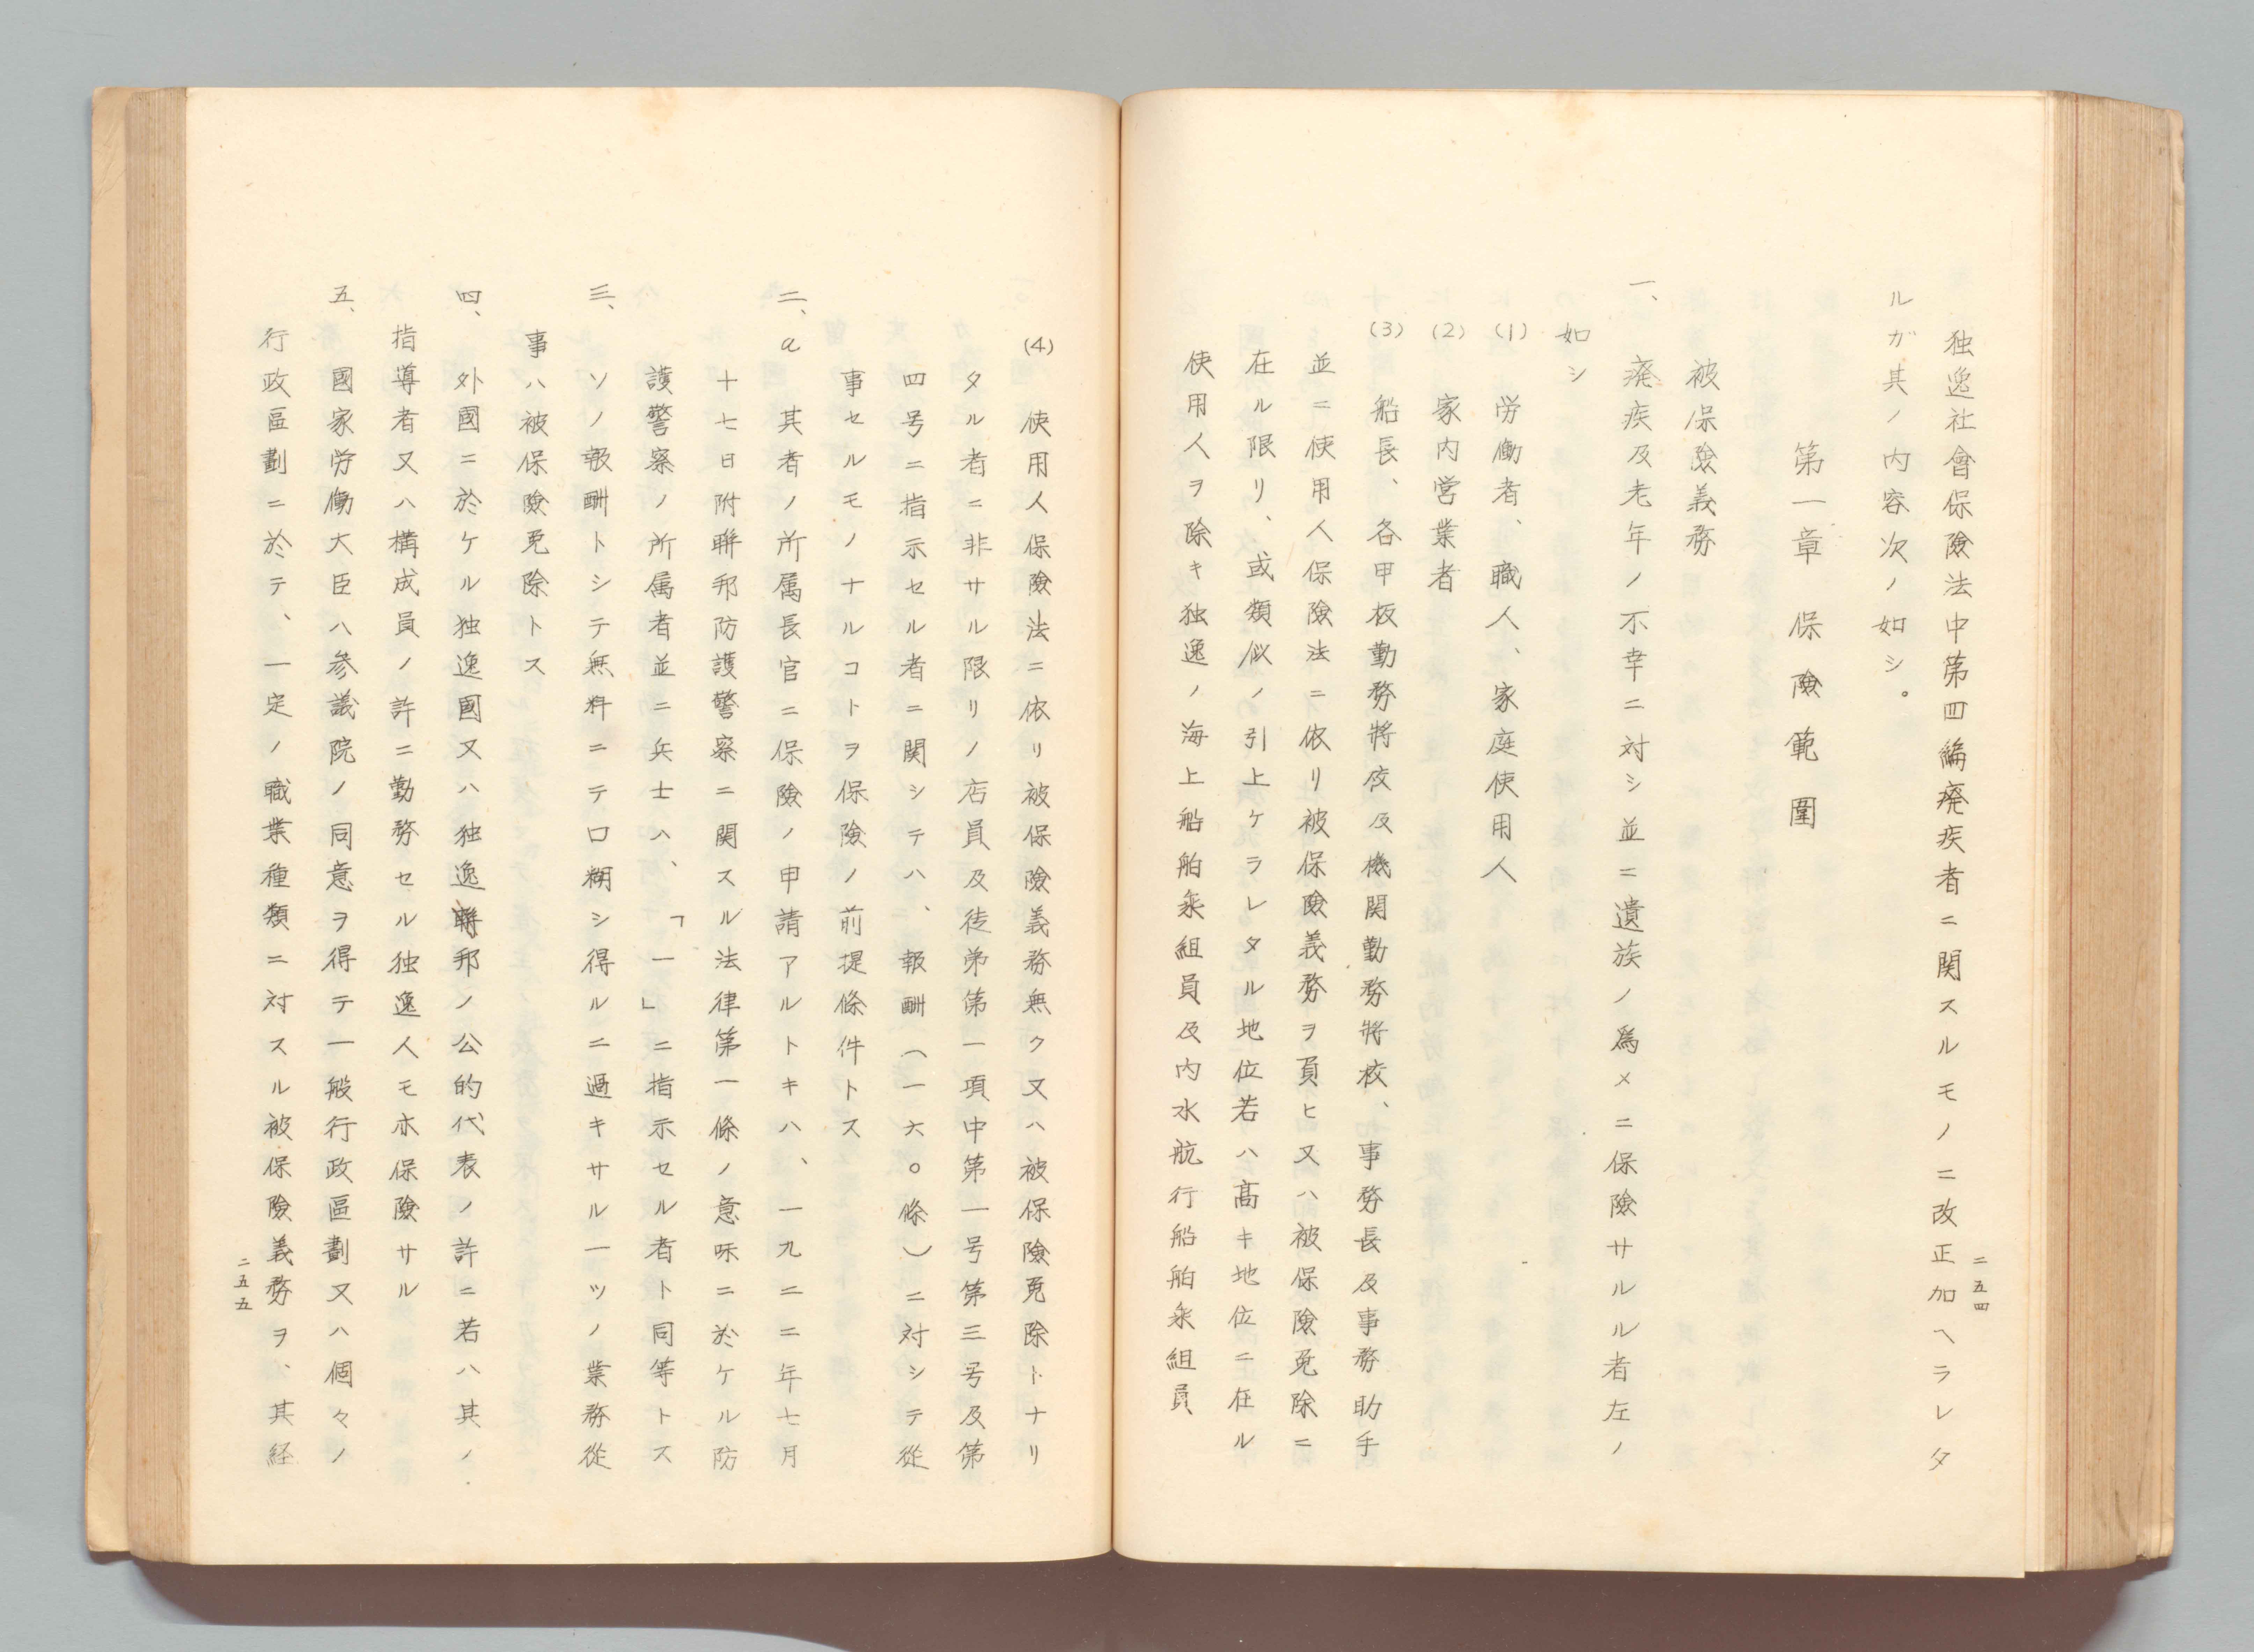 独逸社會保險法中第四編癈疾者ニ関スルモノニ改正加ヘラレタ
ルガ其ノ内容次ノ如シ。
第一章 保險範圍
被保險義務
一、癈疾及老年ノ不幸ニ対シ並ニ遺族ノ爲メニ保險サルル者左ノ
如シ
(1) 労働者、職人、家庭使用人
(2) 家内営業者
(3) 船長、各甲板勤務將校及機関勤務將校、事務長及事務助手
並ニ使用人保險法ニ依リ被保險義務ヲ負ヒ又ハ被保險免除ニ
在ル限リ、或類似ノ引上ケラレタル地位若ハ高キ地位ニ在ル
使用人ヲ除キ独逸ノ海上船舶乘組員及内水航行船舶乘組員
二五四
(4) 使用人保險法ニ依リ被保險義務無ク又ハ被保險免除トナリ
タル者ニ非サル限リノ店員及徒弟第一項中第一号第三号及第
四号ニ指示セル者ニ関シテハ、報酬(一六〇條)ニ対シテ從
事セルモノナルコトヲ保險ノ前提條件トス
二、a 其者ノ所属長官ニ保險ノ申請アルトキハ、一九二二年七月
十七日附聯邦防護警察ニ関スル法律第一條ノ意味ニ於ケル防
護警察ノ所属者並ニ兵士ハ、「一」ニ指示セル者ト同等トス
三、ソノ報酬トシテ無料ニテ口糊シ得ルニ過キサル一ツノ業務從
事ハ被保險免除トス
四、外國ニ於ケル独逸國又ハ独逸聯邦ノ公的代表ノ許ニ若ハ其ノ
指導者又ハ構成員ノ許ニ勤務セル独逸人モ亦保險サル
五、國家労働大臣ハ參議院ノ同意ヲ得テ一般行政區劃又ハ個々ノ
行政區劃ニ於テ、一定ノ職業種類ニ対スル被保險義務ヲ、其経
二五五